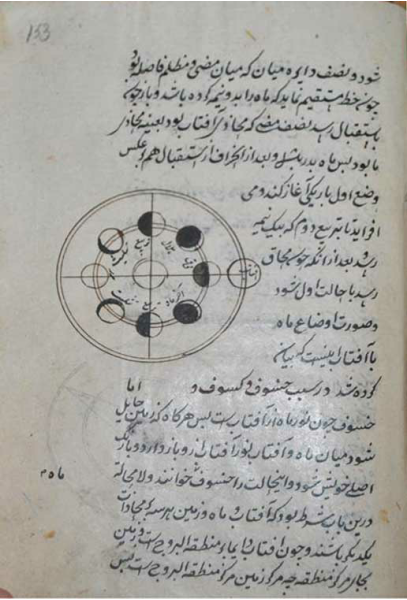 153
شود و نصف دایره میان که میان مضی و مظلم فاصله بود
چون خط مستقیم نماید که ماه را بدو نیمه کرده باشد و باز چون
باستقبال رسد نصف مضی که محاذی آفتاب بود بعینه محاذی
ما بود پس ماه بدر باشد و بعد از انحراف از استقبال هم بر عکس
وضع اول تاریکی آغاز کند و می
افزاید تا تربیع دوم که یک نیمه
رسد و بعد از آنکه چون بمحاق
رسد با حالت اول شود
و صورت اوضاع ماه
با آفتاب اینست که بیان
کرده شد در سبب خسوف و کسوف و اما
خسوف چون نور ماه از آفتاب است پس هرگاه که زمین حایل
شود میان ماه و آفتاب نور آفتاب از و باز دارد و بتاریکی
اصلی خویش شود و این حالت را خسوف خوانند و لا محاله
درین باب شرط بود که آفتاب و ماه و زمین هر سه بمحاذات
یکدیگر باشند و چون آفتاب دایما بر منطقة البروج است و زمین
بجای مرکز منطقه چه مرکز زمین مرکز منطقة البروج است پس
ماه
تربیع
آفتاب